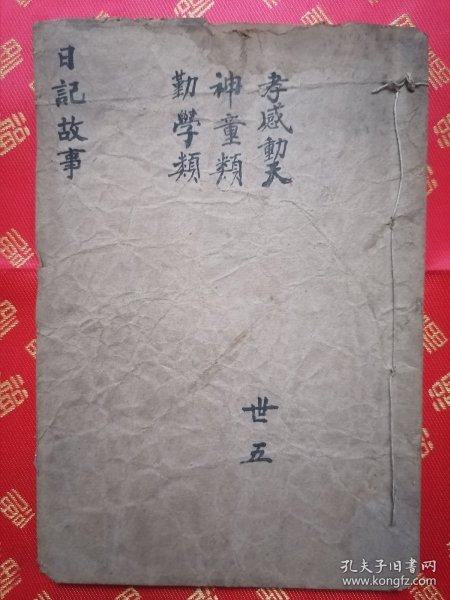 孝感動天
神童類
勤學類
日記故事
世五
孔夫子旧书网
www.kongfz.com